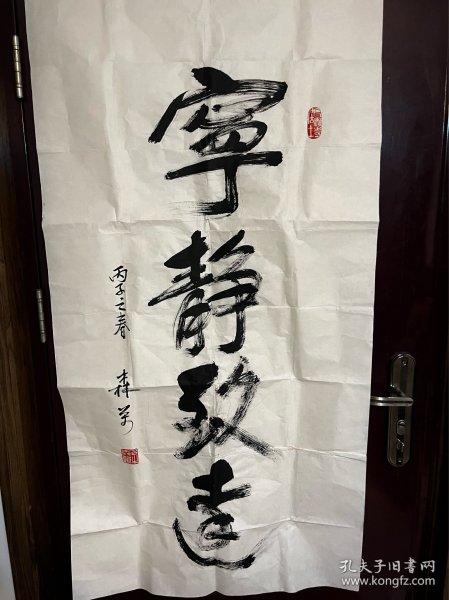 寧靜致遠
丙子之春 森芳
孔夫子旧书网
www.kongfz.com